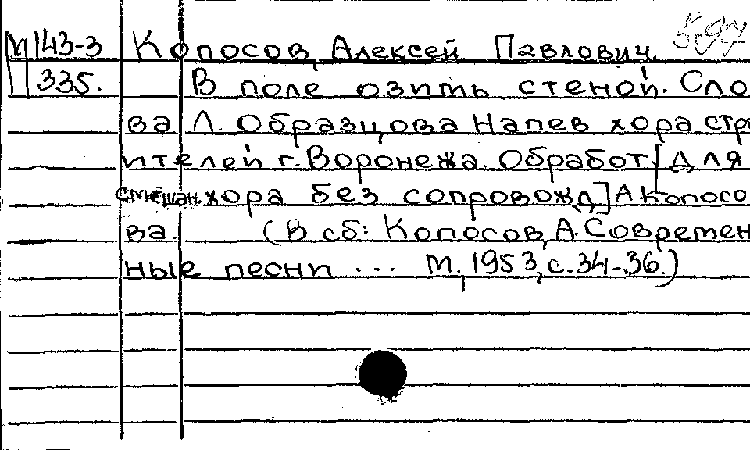 М143-3 Копосов, Алексей Павлович.
335. В поле озимь стеной. Сло
ва Л. Образцова Напев хора стро
ителей г. Воронежа. Обработ[для
смешан. хора без сопровожд] А Копосо
ва (В сб: Копосов, А. Современ
ные песни ... М, 1953, с. 34-36.)